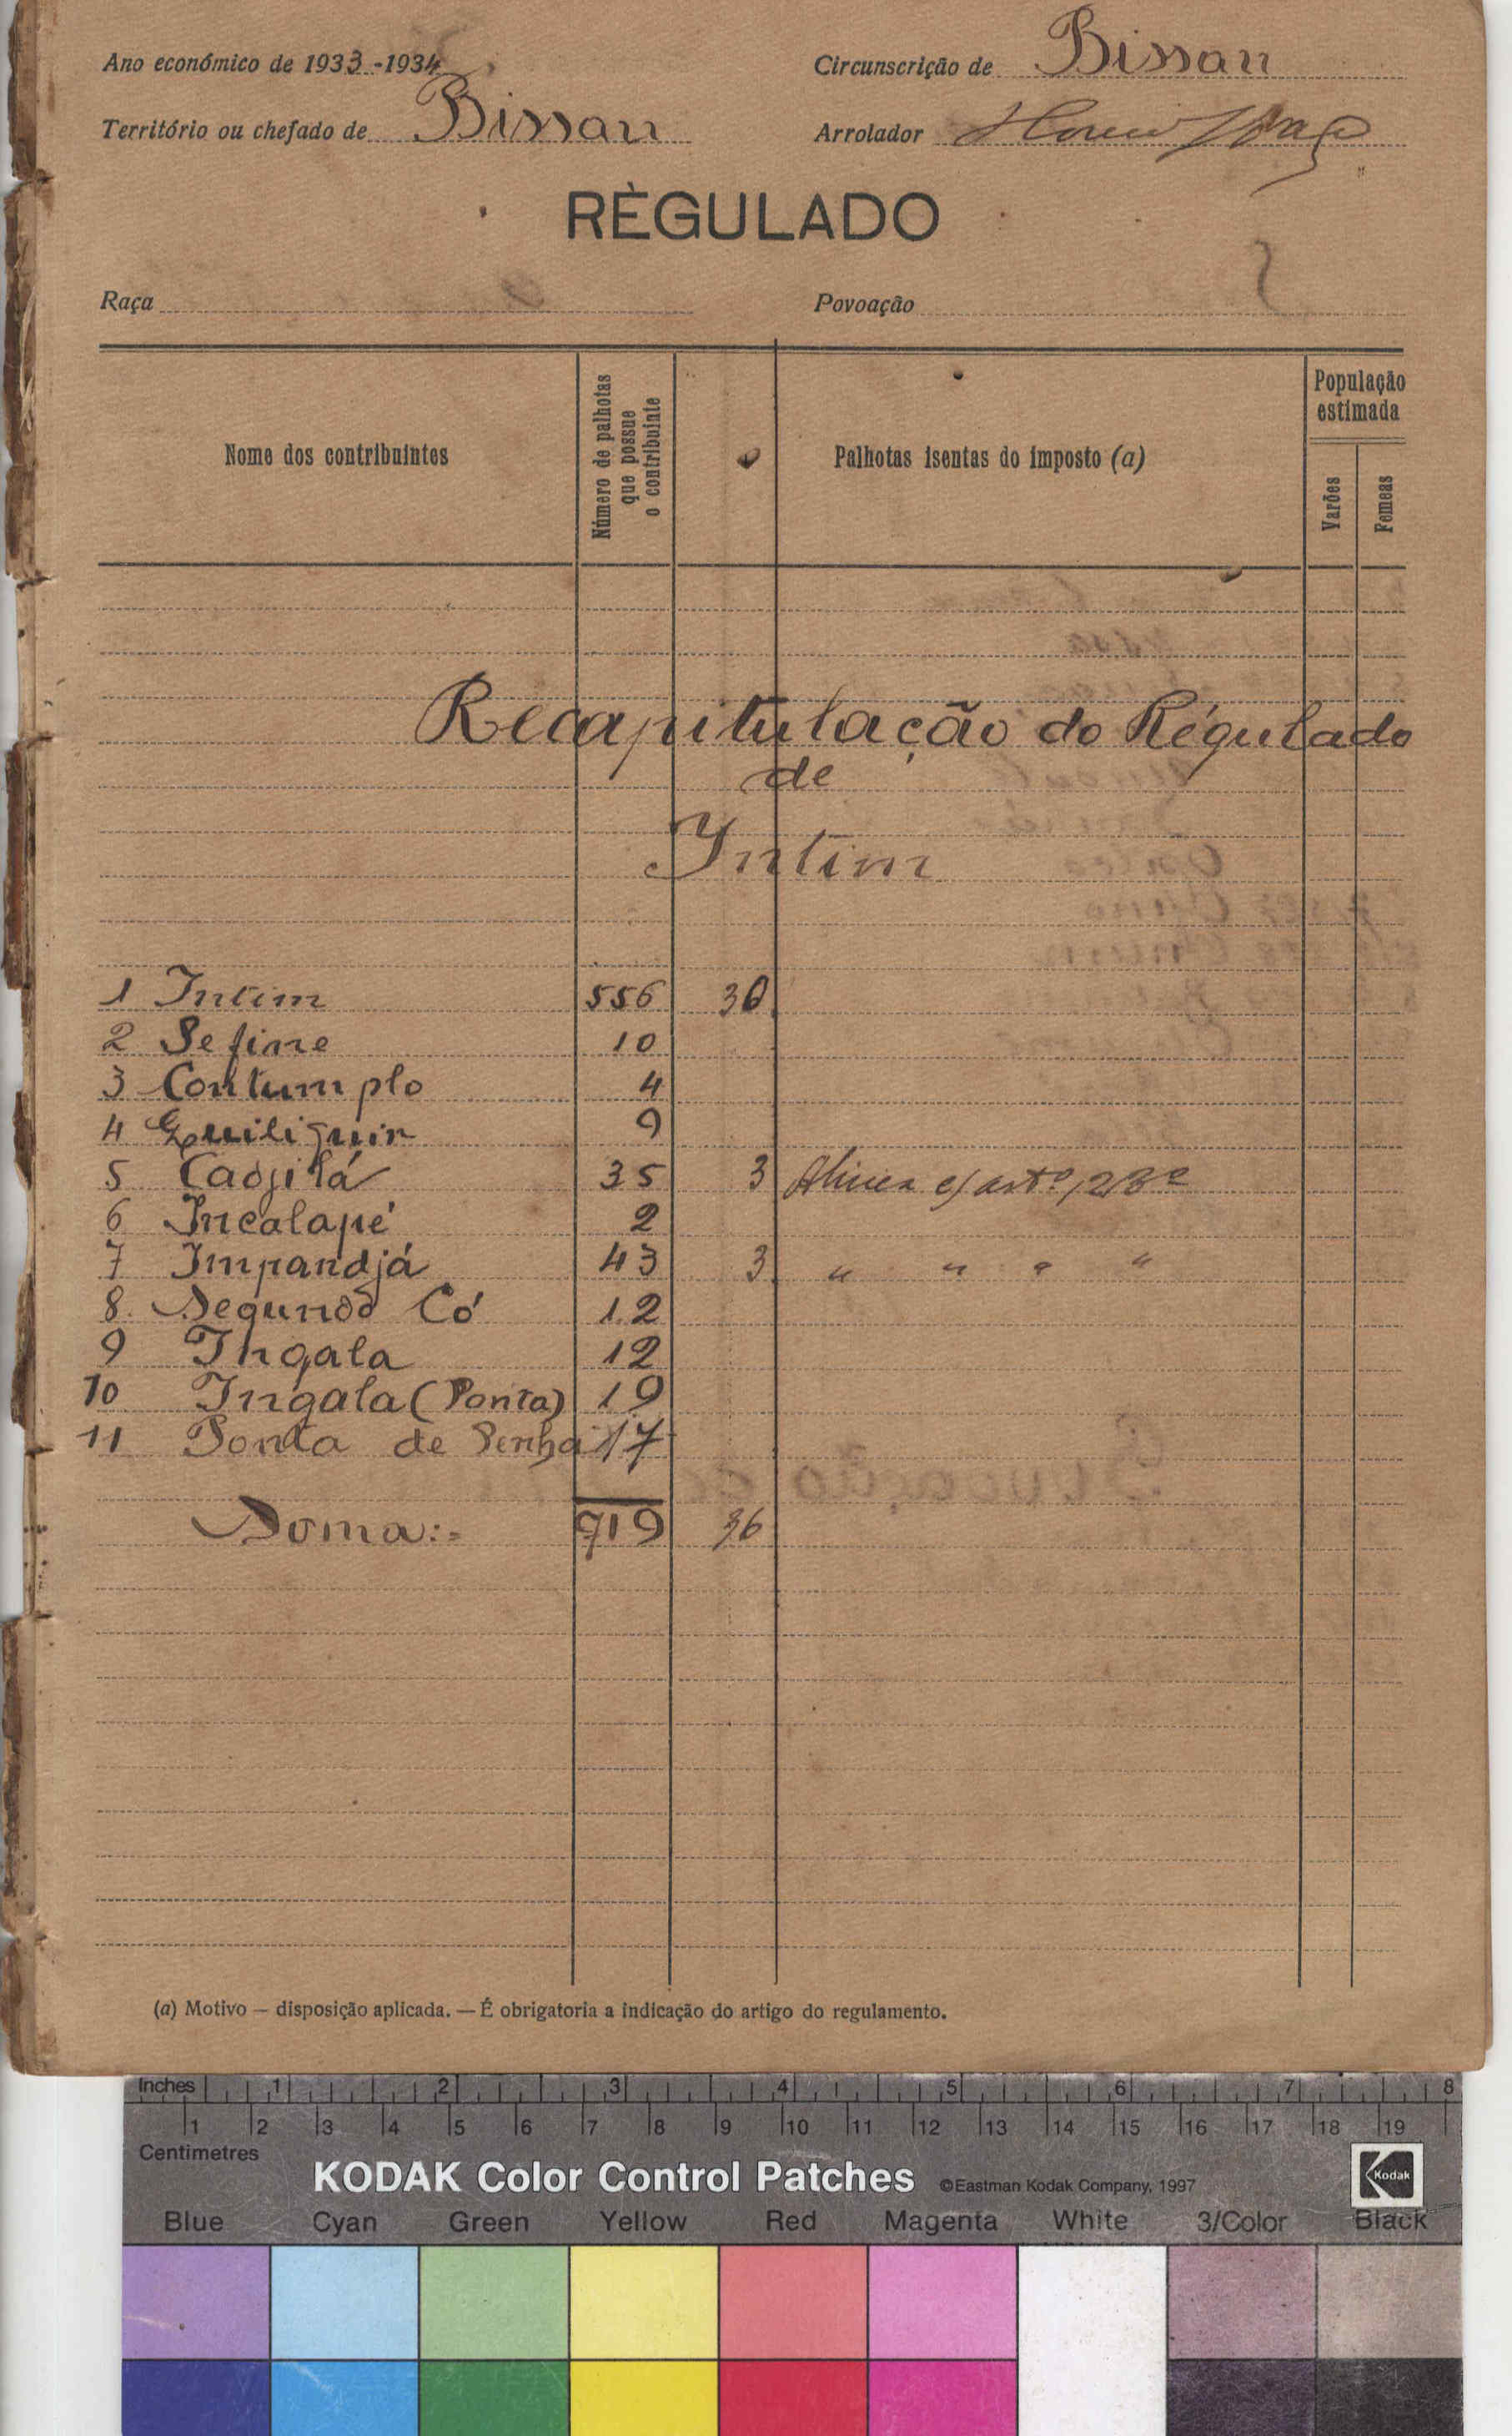 Ano económico de 1933-1934
Circunscrição de Bissau
Território ou chefado de Bissau
Arrolador
RÈGULADO
Raça
Povoação
Nome dos contribuintes
Número de palhotas
que possue
o contribuinte
Palhotas isentas do imposto (a)
População
estimada
Varões
Femeas
Recapitulação do Régulado
de
Intim
1 Intim 556 30
2 Sefine 10
3 Contumplo 4
4 Quiliguir 9
5 Cadjilá 35 3 Alinea c/ artº 23º
6 Incalapé 2
7 Impandjá 43 3 " " " "
8 Segundo Có 12
9 Ingala 12
10 Ingala (Ponta) 19
11 Ponta de Penha 17
Soma:= 719 36
(a) Motivo — disposição aplicada. — É obrigatoria a indicação do artigo do regulamento.
Inches 1 2 3 4 5 6 7 8
1 2 3 4 5 6 7 8 9 10 11 12 13 14 15 16 17 18 19
Centimetres
KODAK Color Control Patches ©Eastman Kodak Company, 1997 Kodak
Blue Cyan Green Yellow Red Magenta White 3/Color Black